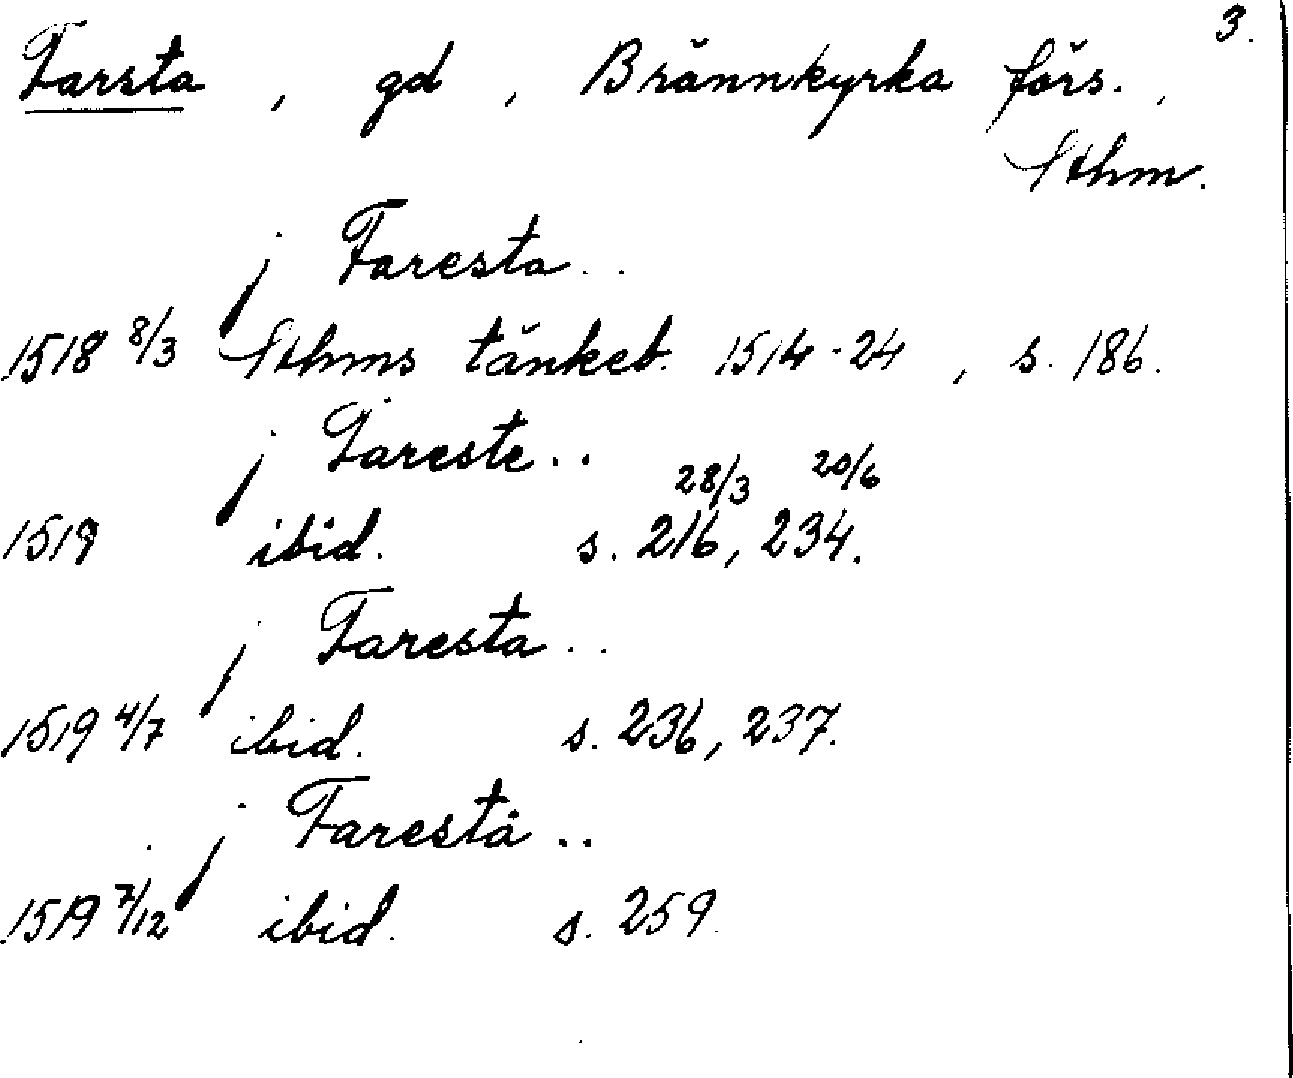 3.
Farsta, gd, Brännkyrka förs.,
Sthm.
j Faresta..
1518 8/3 Sthms tänkeb. 1514-24, s. 186.
j Fareste..
28/3 20/6
1519 ibid. s. 216, 234.
j Faresta..
1519 4/7 ibid. s. 236, 237.
j Farestä..
1519 7/12 ibid. s. 259.